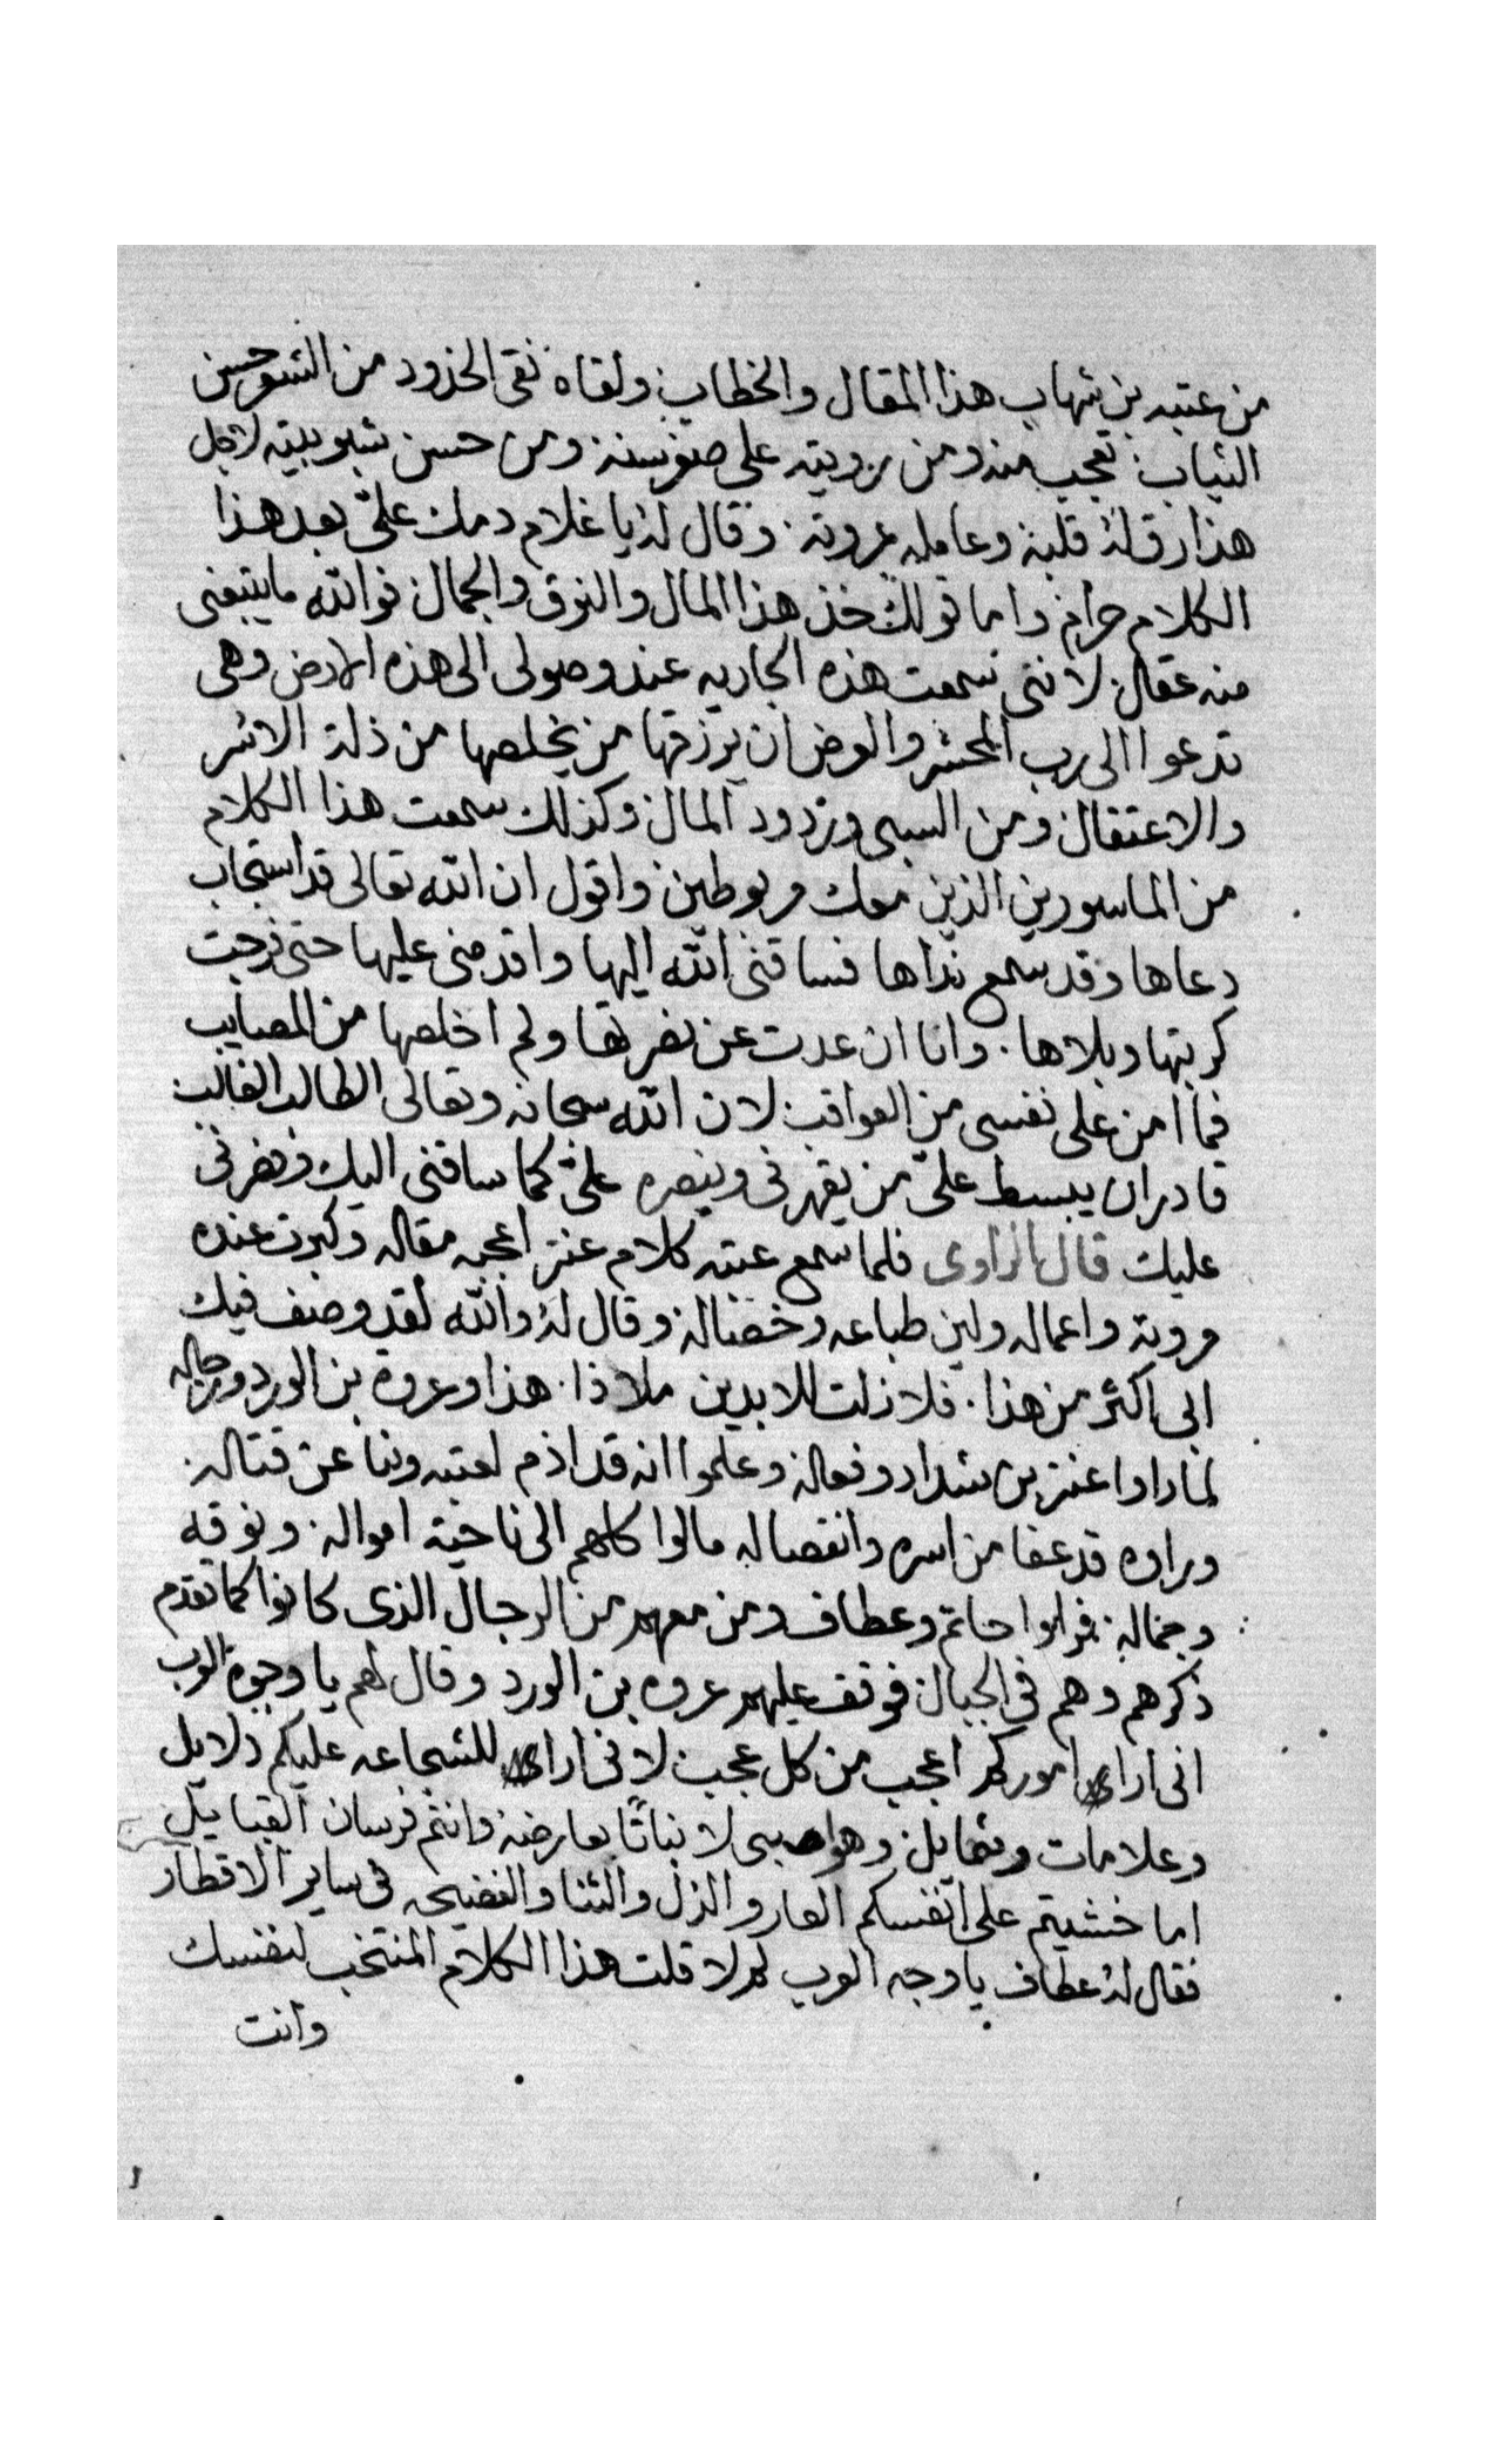 من عتبه بن شهاب هذا المقال والخطاب ولقاه نقى الخدود من الشعر حسن
الثياب تعجب منه ومن رويته على صغر سنه ومن حسن شبوبيته لاجل
هذا رق له قلبه وعامله بمروته وقال له يا غلام دمك علىّ بعد هذا
الكلام حرام واما قولك خذ هذا المال والنوق والجمال فوالله ما يتبعنى
منه عقال لاننى سمعت هذه الجاريه عند وصولى الى هذه الارض وهى
تدعوا الى رب المحشر والعرض ان يرزقها من يخلصها من ذلة الاسر
والاعتقال ومن السبى وتردود المال وكذلك سمعت هذا الكلام
من الماسورين الذين معك مربوطين واقول ان الله تعالى قد استجاب
دعاها وقد سمع نداها فساقنى الله اليها واقدمنى عليها حتى فرجت
كربتها وبلاها وانا ان عدت عن نصرتها ولم اخلصها من المصايب
فما امن على نفسى من العواقب لان الله سبحانه وتعالى الطالب الغالب
قادر ان يبسط علىّ من يقهرنى وينصره علىّ كما ساقنى اليك ونصرنى
عليك قال الراوى فلما سمع عتبه كلام عنتر اعجبه مقاله وكبرت عنده
مروته واعماله ولين طباعه وخصاله وقال له والله لقد وصف فيك
ابى اكثر من هذا فلا زلت للابدين ملاذا هذا وعروه بن الورد ورجاله
لما راوا عنتر بن شداد وفعاله وعلموا انه قد اذم لعتبه وبنا عن قتاله
وراوه قد عفا من اسره وانفصاله مالوا كلهم الى ناحية امواله ونوقه
وجماله فراوا حاتم وعطاف ومن معهم من الرجال الذى كانوا كما تقدم
ذكرهم وهم فى الحبال فوقف عليهم عروه بن الورد وقال لهم يا وجوه العرب
انى ارا اموركم اعجب من كل عجب لانى ارا للشجاعه عليكم دلايل
وعلامات وشمايل وهوا صبى لا نباتًا بعارضه وانتم فرسان القبايل
اما خشيتم على انفسكم العار والذل والثنا والفضيحه فى ساير الاقطار
فقال له عطاف يا وجه العرب لم لا قلت هذا الكلام المنتخب لنفسك
وانت